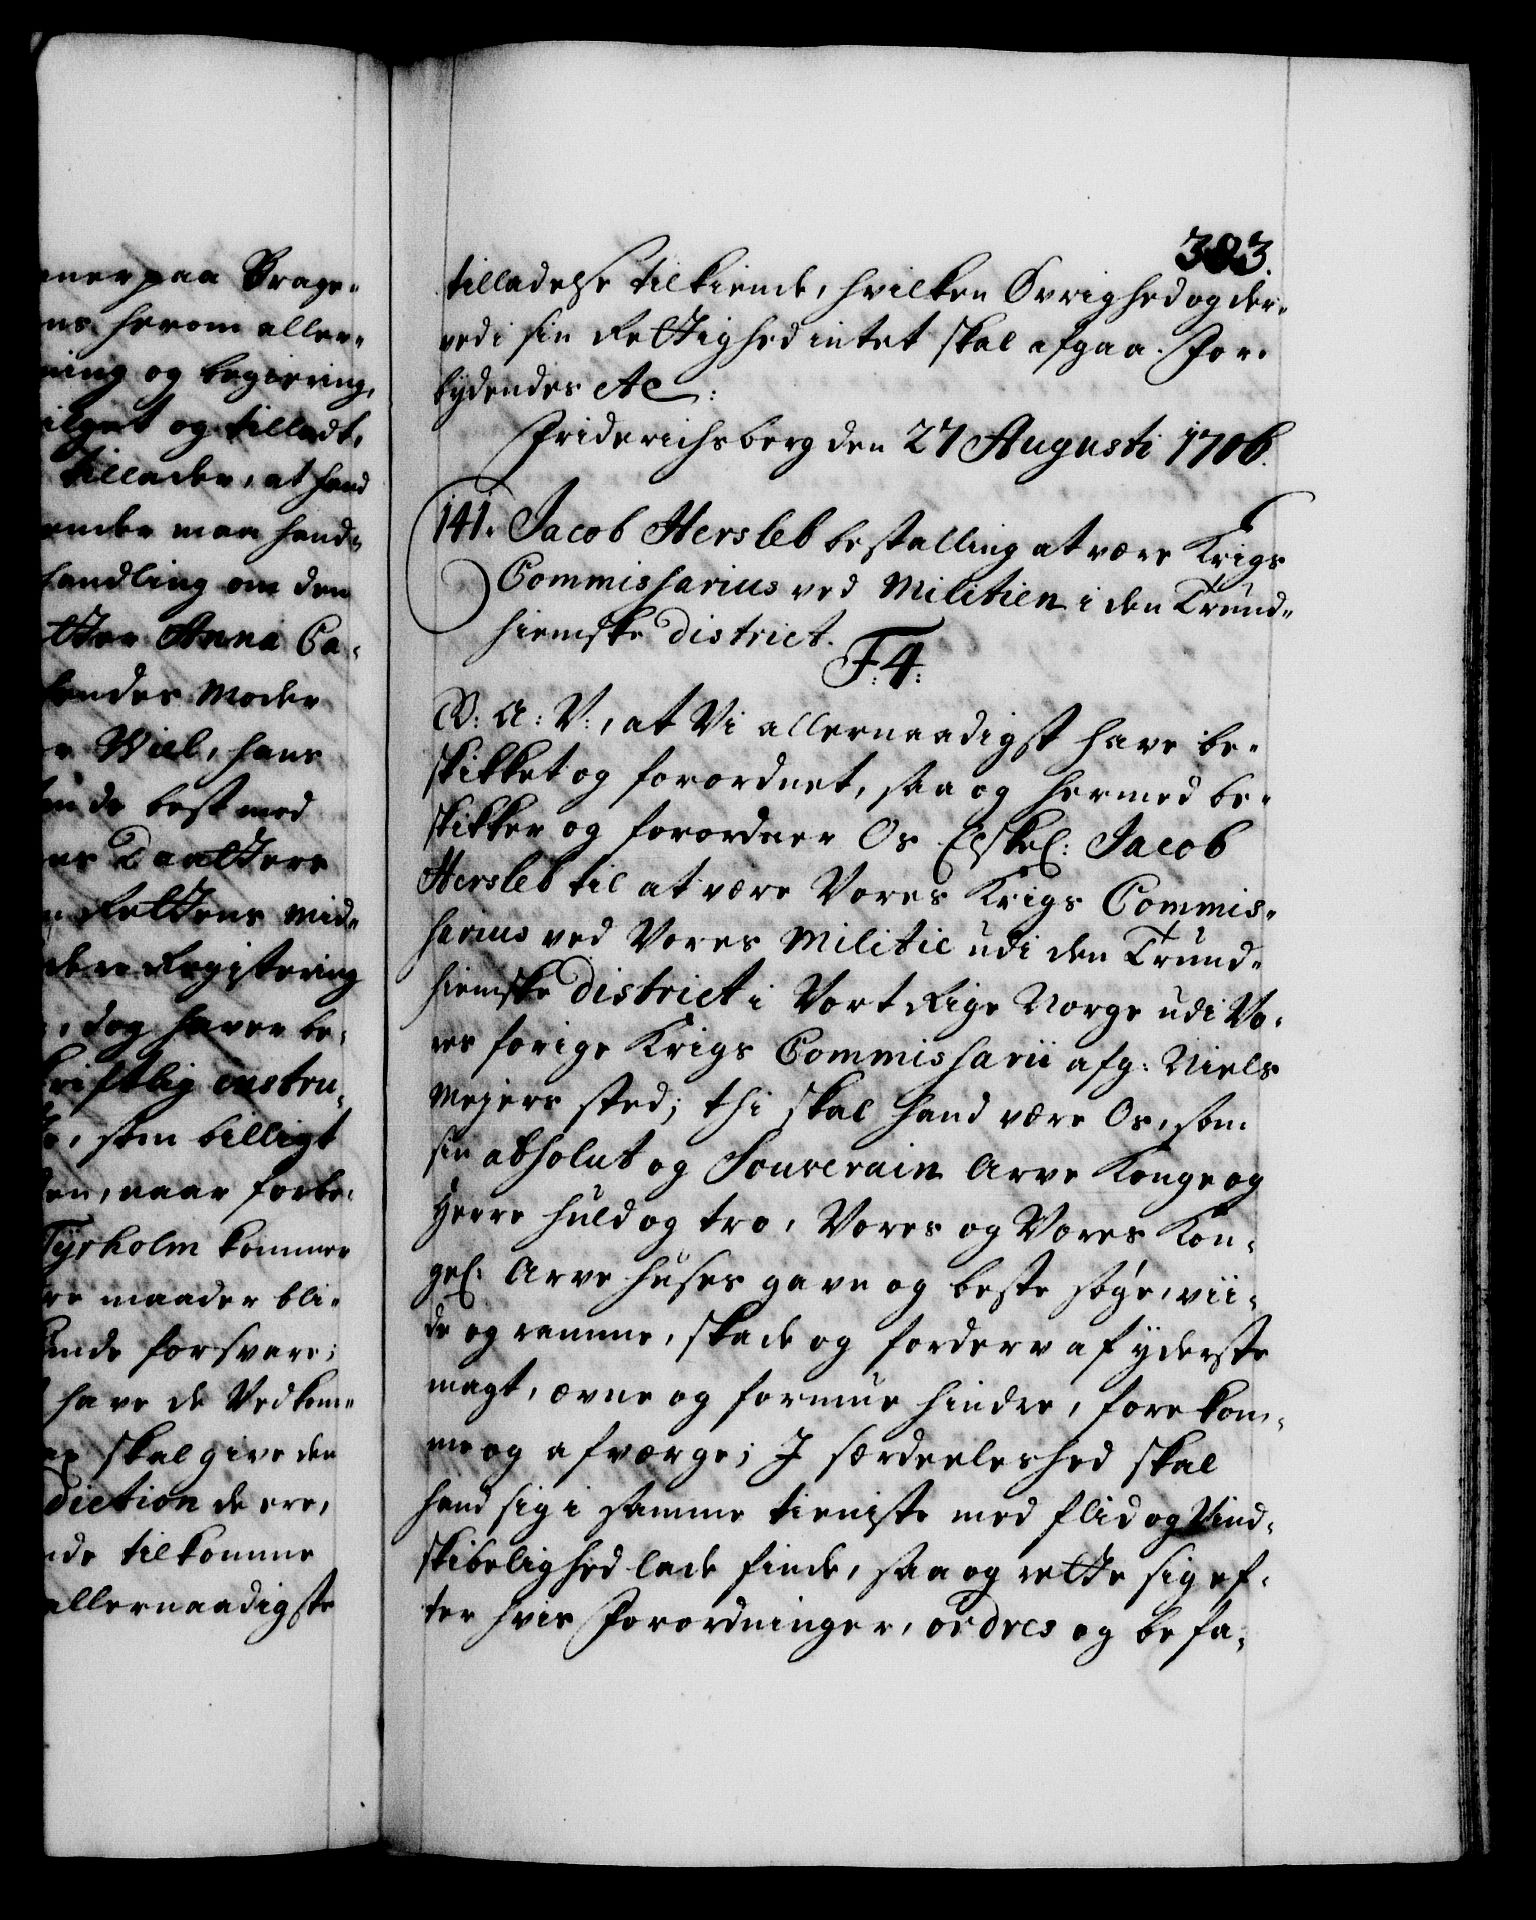 ner paa Brage-
ns herom aller-
ning og begiering,
ilget og tilladt,
tillader, at hand
ender maa hand-
handling om den
tter Anna Ca-
hendes Moder
Wiel, hans
unde best med
Daatters
Rettens mid-
Registering
, dog haver be-
skriftlig instru-
, som billigt
en, naar forbe-
Tyrholm kommer
re maader bli-
unde forsvare;
have de Vedkom-
skal give den
diction de ere,
nde tilkomme
allernaadigste
383.
tilladelse tilkiende, hvilken Øvrighed og der-
ved i sin Rettighed intet skal afgaa. For-
bydendes Ac:
Friderichsberg den 27 Augusti 1706.
141. Jacob Hersleb bestalling at være Krigs
Commissarius ved Militien i den Trund-
hiemske district.
F: 4:
G: A: V:, at Vi allernaadigst have be-
skikket og forordnet, saa og hermed be-
skikker og forordner Os Elskel: Jacob
Hersleb til at være Vores Krigs Commis-
sarius ved Vores Militie udi den Trund-
hiemske district i Vort Rige Norge udi Vo-
res forige Krigs Commissarii afg: Niels
Mejers sted; thi skal hand være Os, som
sin absolut og Souverain Arve Konge og
Herre huld og tro, Vores og Vores Kon-
gel: Arve huses gavn og beste søge, vii-
de og ramme, skade og forderv af yderste
magt, ævne og formue hindre, forekom-
me og afværge; I særdeeleshed skal
hand sig i samme tieniste med flid og Vind-
skibelighed lade finde, saa og rette sig ef-
ter hvis Forordninger, ordres og befa-